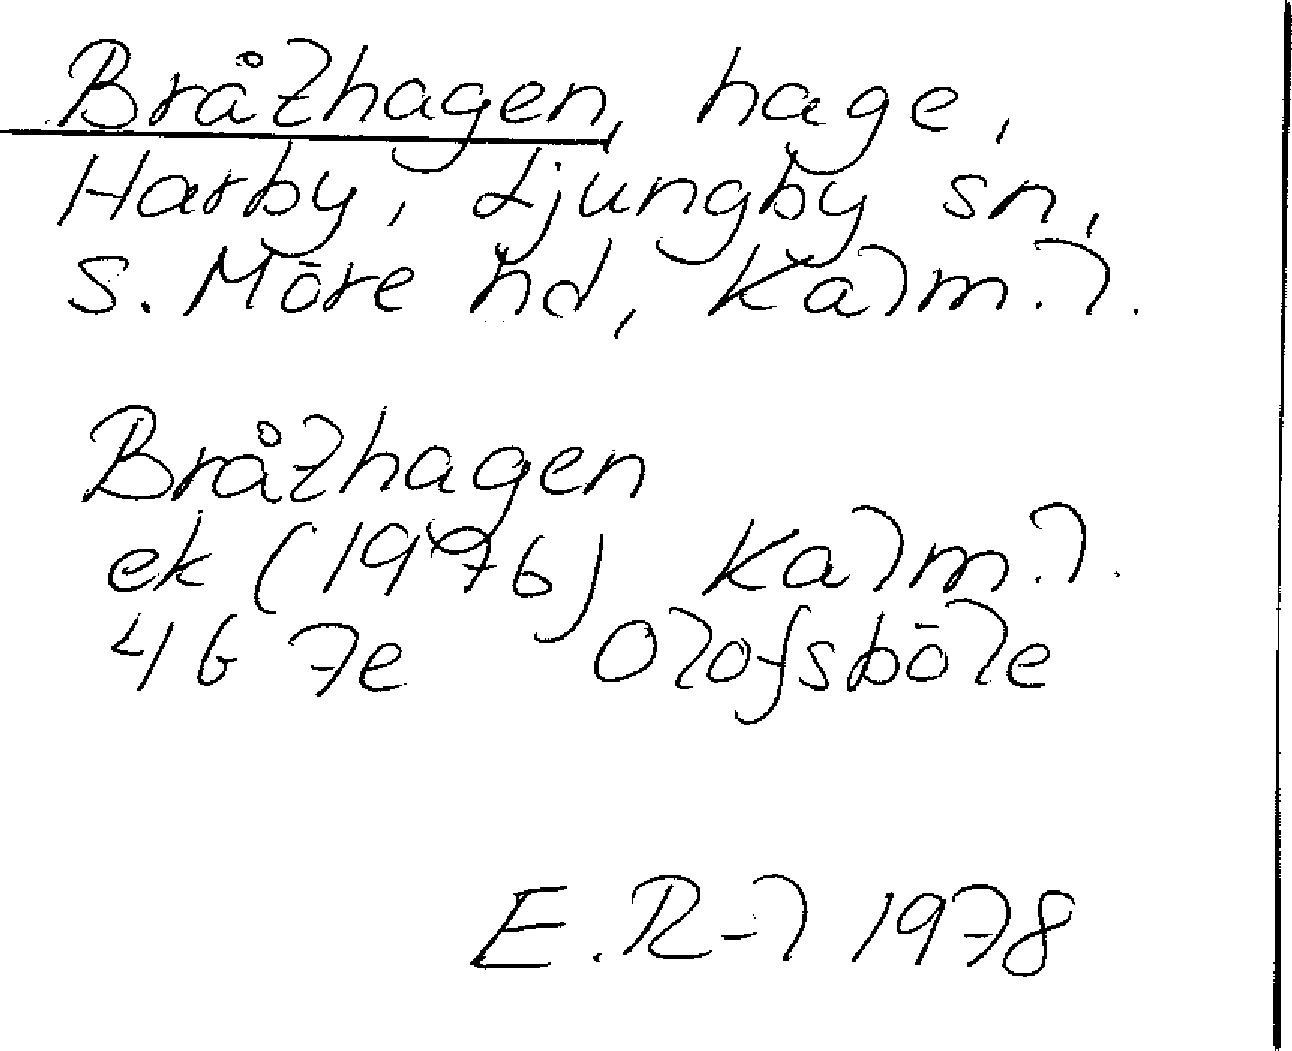 Bråthagen, hage,
Harby, Ljungby sn,
S. Möre hd, Kalm. l.
Bråthagen
ek (1976) Kalm. l.
4G 7e Olofsböle
E. R-l 1978